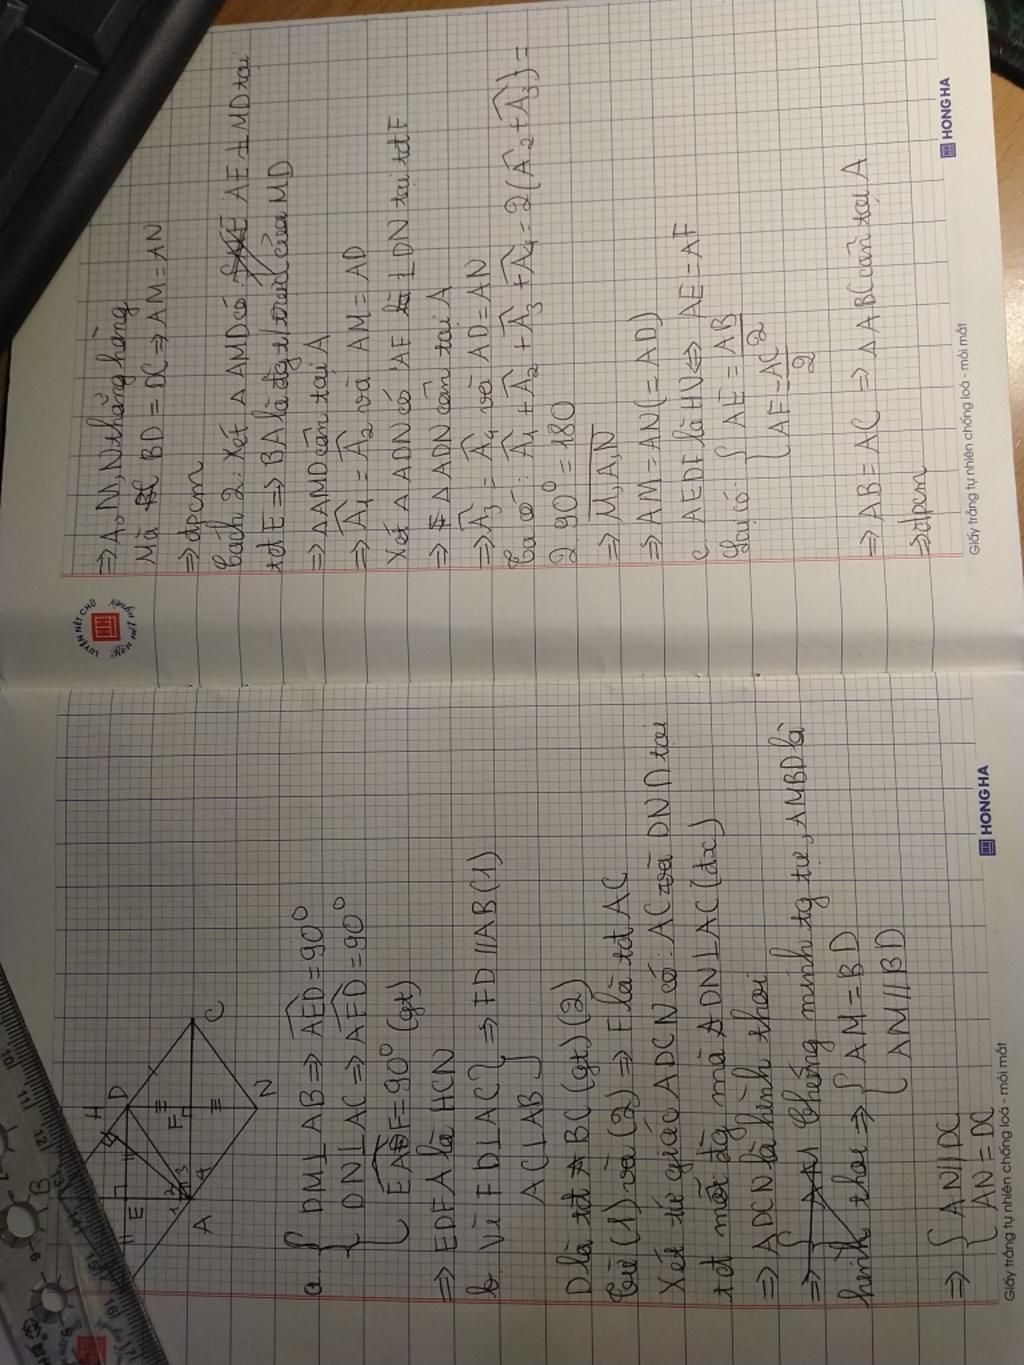 H
D
E
F
A
C
N
B
1 2 3 4
a { DM⊥AB ⇒ AED = 90°
DN⊥AC ⇒ AFD = 90°
EAF = 90° (gt)
⇒ EDFA là HCN
b. Vì FD⊥AC } ⇒ FD // AB (1)
AC⊥AB
D là tđ BC (gt) (2)
Từ (1) và (2) ⇒ F là tđ AC
Xét tứ giác ADCN có: AC và DN tại
tđ mỗi đg mà DN⊥AC (đx)
⇒ ADCN là hình thoi
⇒ Chứng minh tg tự, AMBD là
hình thoi ⇒ { AM = BD
AM // BD
⇒ { AN // DC
AN = DC
Giấy trắng tự nhiên chống loá - mỏi mắt
HONG HA
LUYỆN NÉT CHỮ
Rèn nết người
⇒ A, M, N thẳng hàng
Mà BD = DC ⇒ AM = AN
⇒ đpcm
Cách 2: Xét Δ AMD có AE⊥MD tại
tđ E ⇒ BA là đg trực của MD
⇒ ΔAMD cân tại A
⇒ A1 = A2 và AM = AD
Xét Δ ADN có AF ⊥ DN tại tđ F
⇒ Δ ADN cân tại A
⇒ A3 = A4 và AD = AN
Ta có: A1 + A2 + A3 + A4 = 2(A2 + A3) =
2 90° = 180
⇒ M, A, N
⇒ AM = AN (= AD)
c AEDF là HV ⇔ AE = AF
Lại có: { AE = AB/2
AF = AC/2
⇒ AB = AC ⇒ ABC cân tại A
⇒ đpcm
Giấy trắng tự nhiên chống loá - mỏi mắt
HONG HA